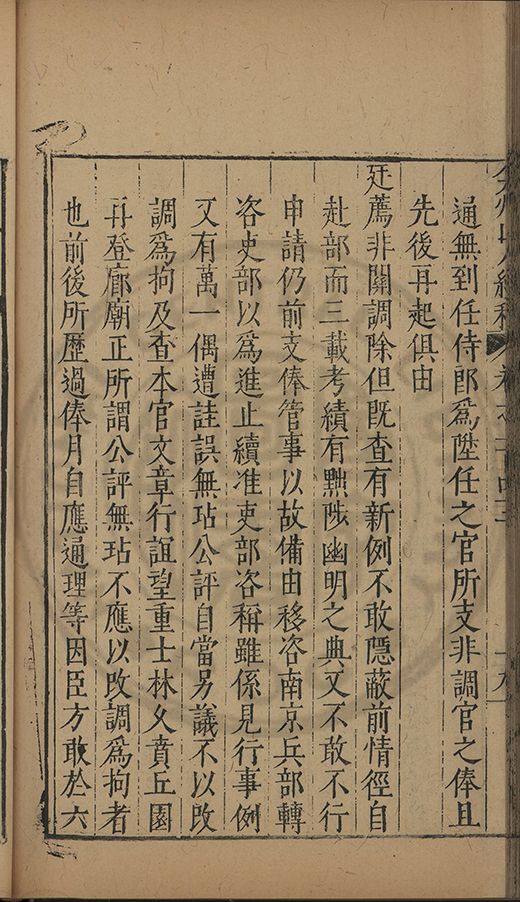 弇州山人續稿 卷之一百四十三 十九
通無到任侍郎爲陞任之官所支非調官之俸且
先後再起俱由
廷薦非關調除但旣查有新例不敢隱蔽前情徑自
赴部而三載考績有黜陟幽明之典又不敢不行
申請仍前支俸管事以故備由移咨南京兵部轉
咨吏部以爲進止續准吏部咨稱雖係見行事例
又有萬一偶遭詿誤無玷公評自當另議不以改
調爲拘及查本官文章行誼望重士林久賁丘園
再登廊廟正所謂公評無玷不應以改調爲拘者
也前後所歷過俸月自應通理等因臣方敢於六